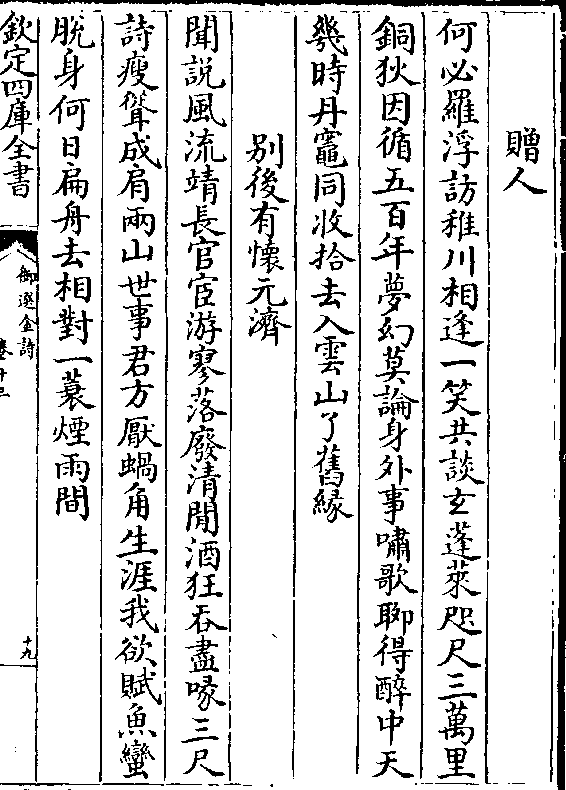 贈人
何必羅浮訪稚川相逢一笑共談玄蓬萊咫尺三萬里
銅狄因循五百年夢幻莫論身外事嘯歌聊得醉中天
幾時丹竈同收拾去入雲山了舊緣
别後有懷元濟
聞說風流靖長官宦游寥落廢清閒酒狂吞盡喙三尺
詩瘦聳成肩兩山世事君方厭蝸角生涯我欲賦魚蠻
脫身何日扁舟去相對一蓑煙雨間
欽定四庫全書
御選金詩
卷十三
十九